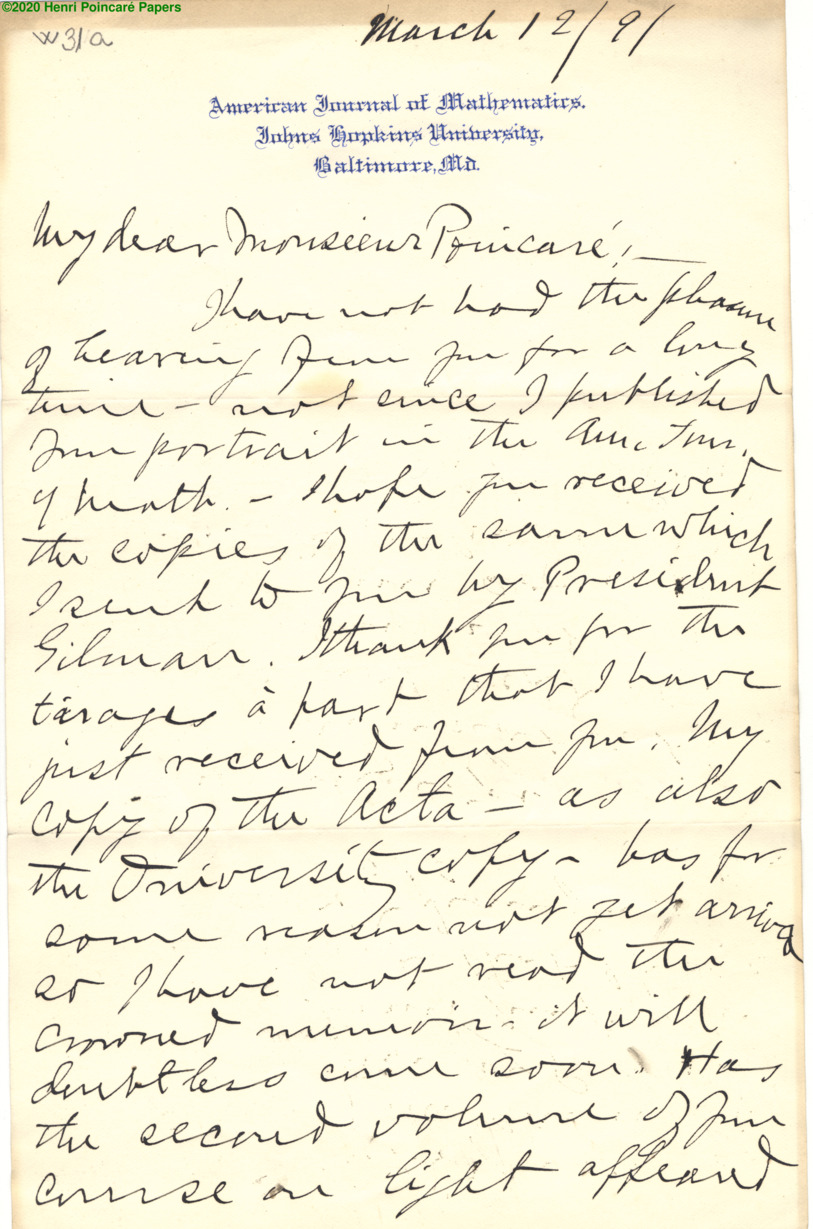 ©2020 Henri Poincaré Papers
W31a
March 12/91
American Journal of Mathematics.
Johns Hopkins University,
Baltimore, Md.
My dear Monsieur Poincaré; —
I have not had the pleasure
of hearing from you for a long
time – not since I published
your portrait in the Am. Jour.
of Math. – I hope you received
the copies of the same which
I sent to you by President
Gilman. I thank you for the
tirages à part that I have
just received from you. My
copy of the Acta – as also
the University copy – has for
some reason not yet arrived
so I have not read the
crowned memoir – it will
doubtless come soon. Has
the second volume of your
course on light appeared